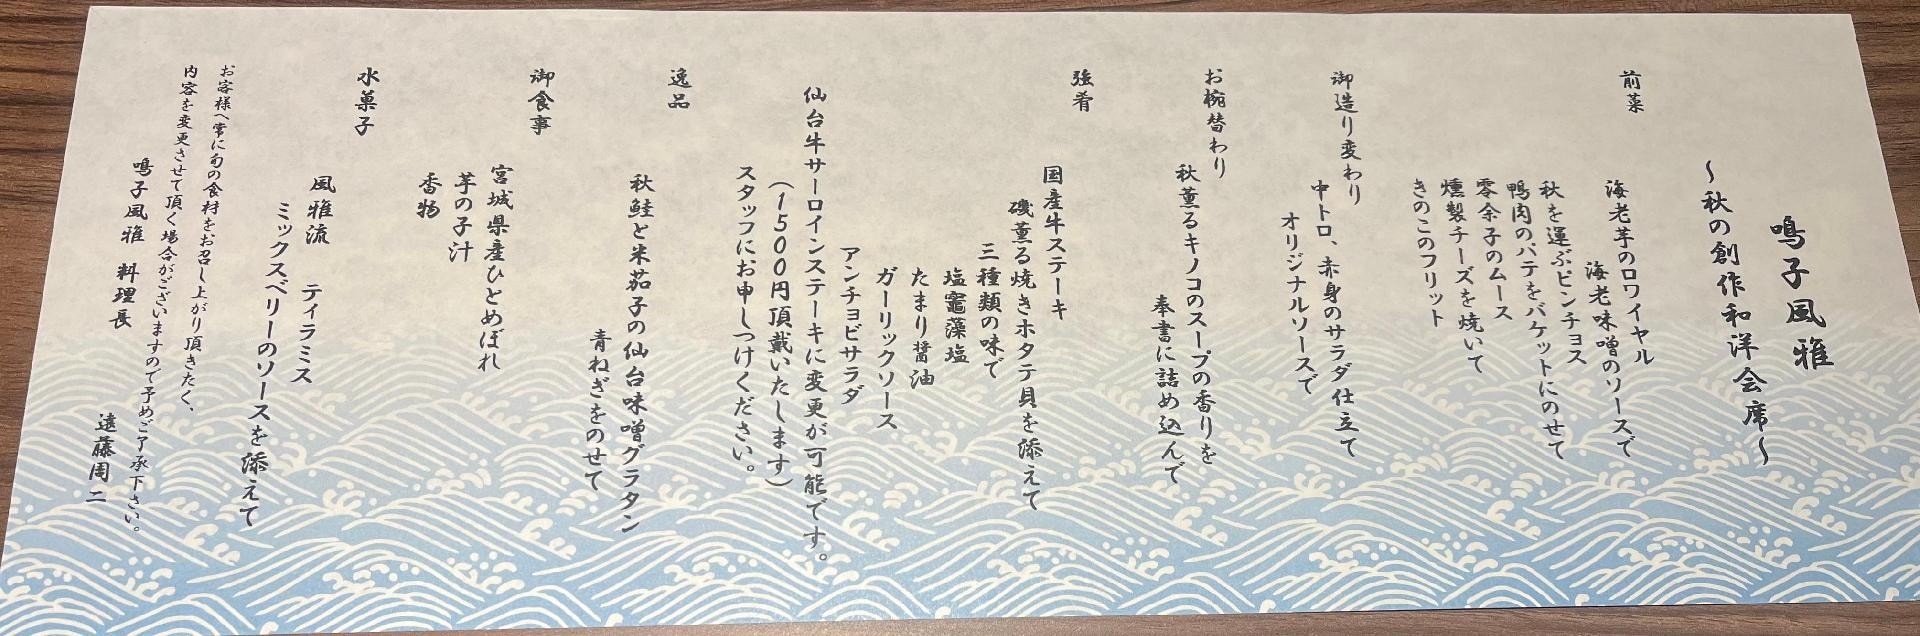 鳴子風雅
～秋の創作和洋会席～
前菜
海老芋のロワイヤル
海老味噌のソースで
秋を運ぶピンチョス
鴨肉のパテをバケットにのせて
零余子のムース
燻製チーズを焼いて
きのこのフリット
御造り変わり
中トロ、赤身のサラダ仕立て
オリジナルソースで
お椀替わり
秋薫るキノコのスープの香りを
奉書に詰め込んで
強肴
国産牛ステーキ
磯薫る焼きホタテ貝を添えて
三種類の味で
塩竈藻塩
たまり醤油
ガーリックソース
アンチョビサラダ
仙台牛サーロインステーキに変更が可能です。
(1500円頂戴いたします)
スタッフにお申しつけください。
逸品
秋鮭と米茄子の仙台味噌グラタン
青ねぎをのせて
御食事
宮城県産ひとめぼれ
芋の子汁
香物
水菓子
風雅流 ティラミス
ミックスベリーのソースを添えて
お客様へ常に旬の食材をお召し上がり頂きたく、
内容を変更させて頂く場合がございますので予めご了承下さい。
鳴子風雅 料理長
遠藤周二